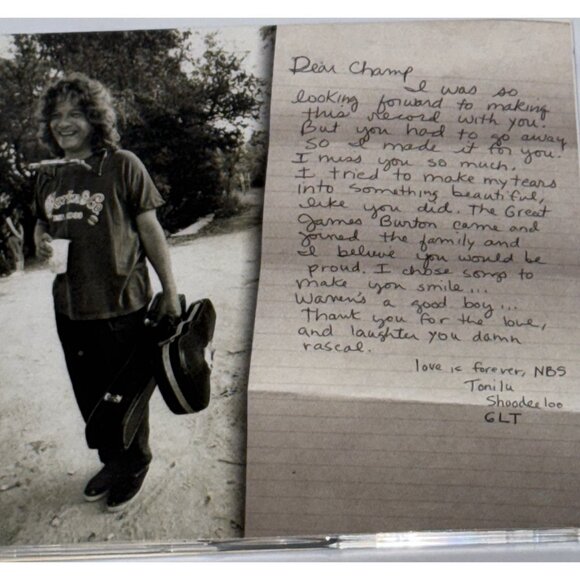 Dear Champ
I was so
looking forward to making
this record with you.
But you had to go away
So I made it for you.
I miss you so much.
I tried to make my tears
into something beautiful,
like you did. The Great
James Burton came and
joined the family and
I believe you would be
proud. I chose songs to
make you smile...
Warren's a good boy...
Thank you for the love,
and laughter you damn
rascal.
love is forever, NBS
Tonilu
Shoodeeloo
GLT